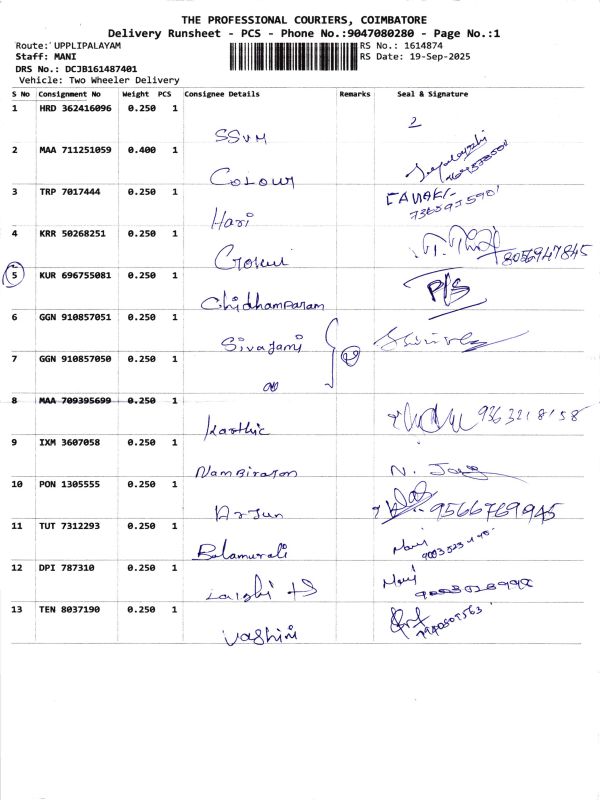 THE PROFESSIONAL COURIERS, COIMBATORE
Delivery Runsheet - PCS - Phone No.:9047080280 - Page No.:1
Route: UPPLIPALAYAM RS No.: 1614874
Staff: MANI RS Date: 19-Sep-2025
DRS No.: DCJB161487401
Vehicle: Two Wheeler Delivery
S No Consignment No Weight PCS Consignee Details Remarks Seal & Signature
1 HRD 362416096 0.250 1
SSVM 2
2 MAA 711251059 0.400 1
Colour
3 TRP 7017444 0.250 1
Hari
4 KRR 50268251 0.250 1
8056947845
5 KUR 696755081 0.250 1
Chidhamparam
6 GGN 910857051 0.250 1
Sivagami
7 GGN 910857050 0.250 1
8 MAA 709395699 0.250 1
Karthic 9363218158
9 IXM 3607058 0.250 1
Nambirajan
10 PON 1305555 0.250 1
Arjun 9566769945
11 TUT 7312293 0.250 1
Balamurali Mani
12 DPI 787310 0.250 1
Mani
13 TEN 8037190 0.250 1
Vashini